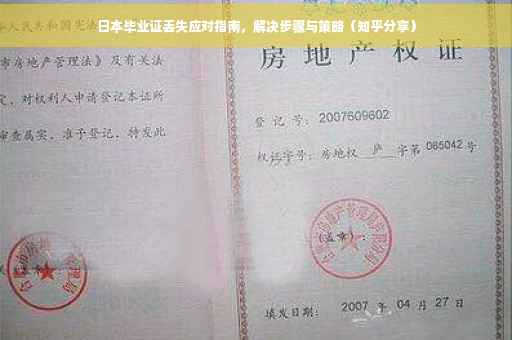 日本毕业证丢失应对指南，解决步骤与策略（知乎分享）
华人民共和国宪法
市房地产管理法》及有关法
定，对权利人申请登记本证所
审查属实，准予登记，特发此
房地产权证
登记号：2007609602
权证字号：房地权 庐 字第 085042 号
（盖章）：
填发日期：2007 年 04 月 27 日